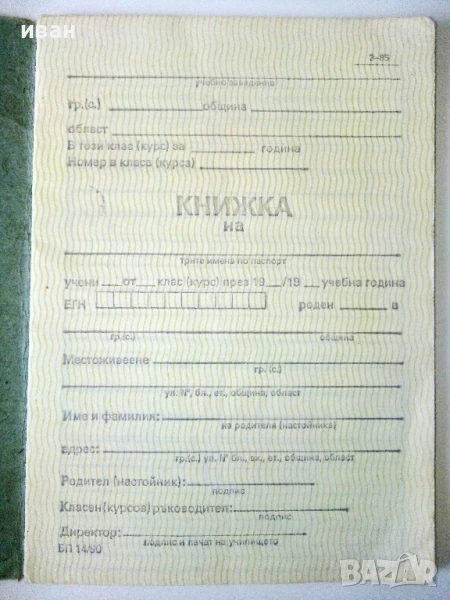 иван
3-85
учебно заведение
гр.(с.) община
област
В този клас (курс) за година
Номер в класа (курса)
КНИЖКА
на
трите имена по паспорт
учени от клас (курс) през 19 /19 учебна година
ЕГН роден в
гр.(с.) община
Местоживеене
гр. (с.)
ул. №, бл., ет., община, област
Име и фамилия:
на родителя (настойника)
адрес:
гр.(с.) ул. № бл., вх., ет., община, област
Родител (настойник):
подпис
Класен (курсов) ръководител:
подпис
Директор:
подпис и печат на училището
БП 14/90
bazar